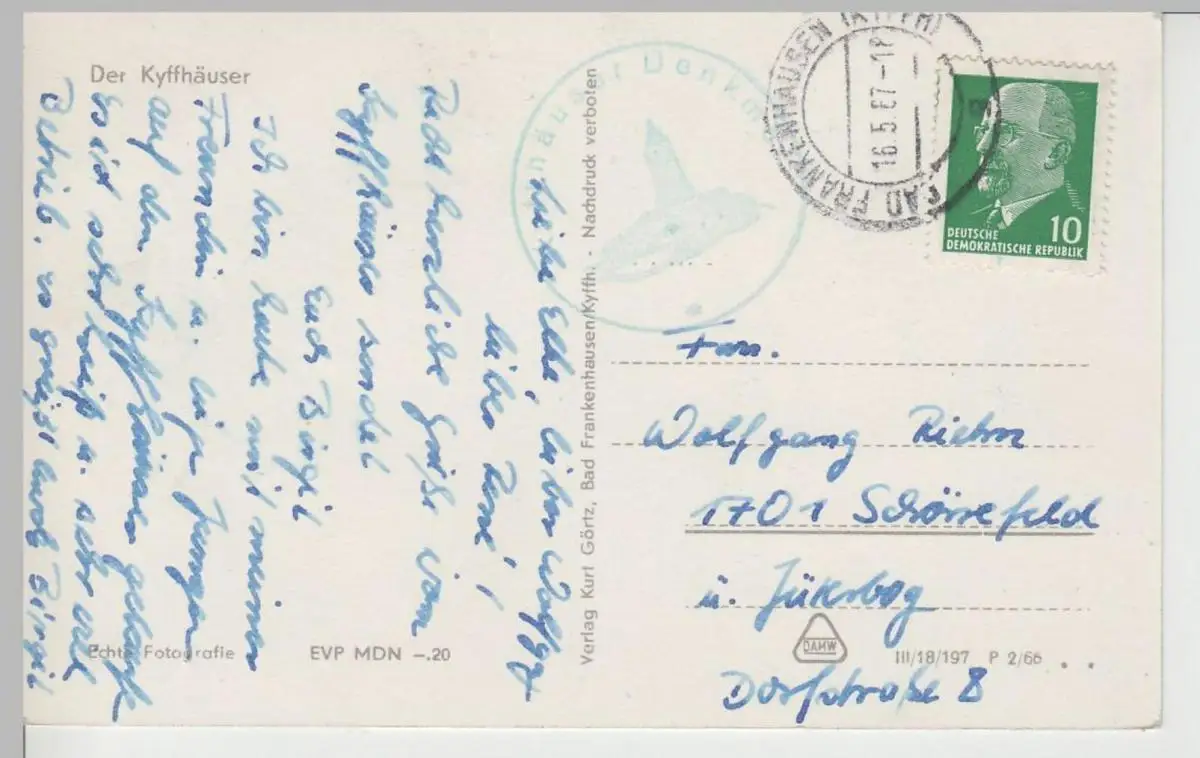 Der Kyffhäuser
Liebe Elke, lieber Wolfgg
liebe René!
Recht herzliche Grüße vom
Kyffhäuser sendet
Euch Birgit
Ich bin heute mit meiner
Freundin u. ihr Jungen
auf den Kyffhäuser
Es ist sehr heiß u. sehr viel
Betrieb. so grüßt Euch Birgit
Echte Fotografie
EVP MDN –.20
Verlag Kurt Görtz, Bad Frankenhausen/Kyffh. - Nachdruck verboten
häuser Denkm
BAD FRANKENHAUSEN (KYFFH)
16.5.67-18
a
10
DEUTSCHE
DEMOKRATISCHE REPUBLIK
Fam.
Wolfgang Riehm
1701 Schönefeld
ü. Jüterbog
Dorfstraße 8
DAMW
III/18/197 P 2/66